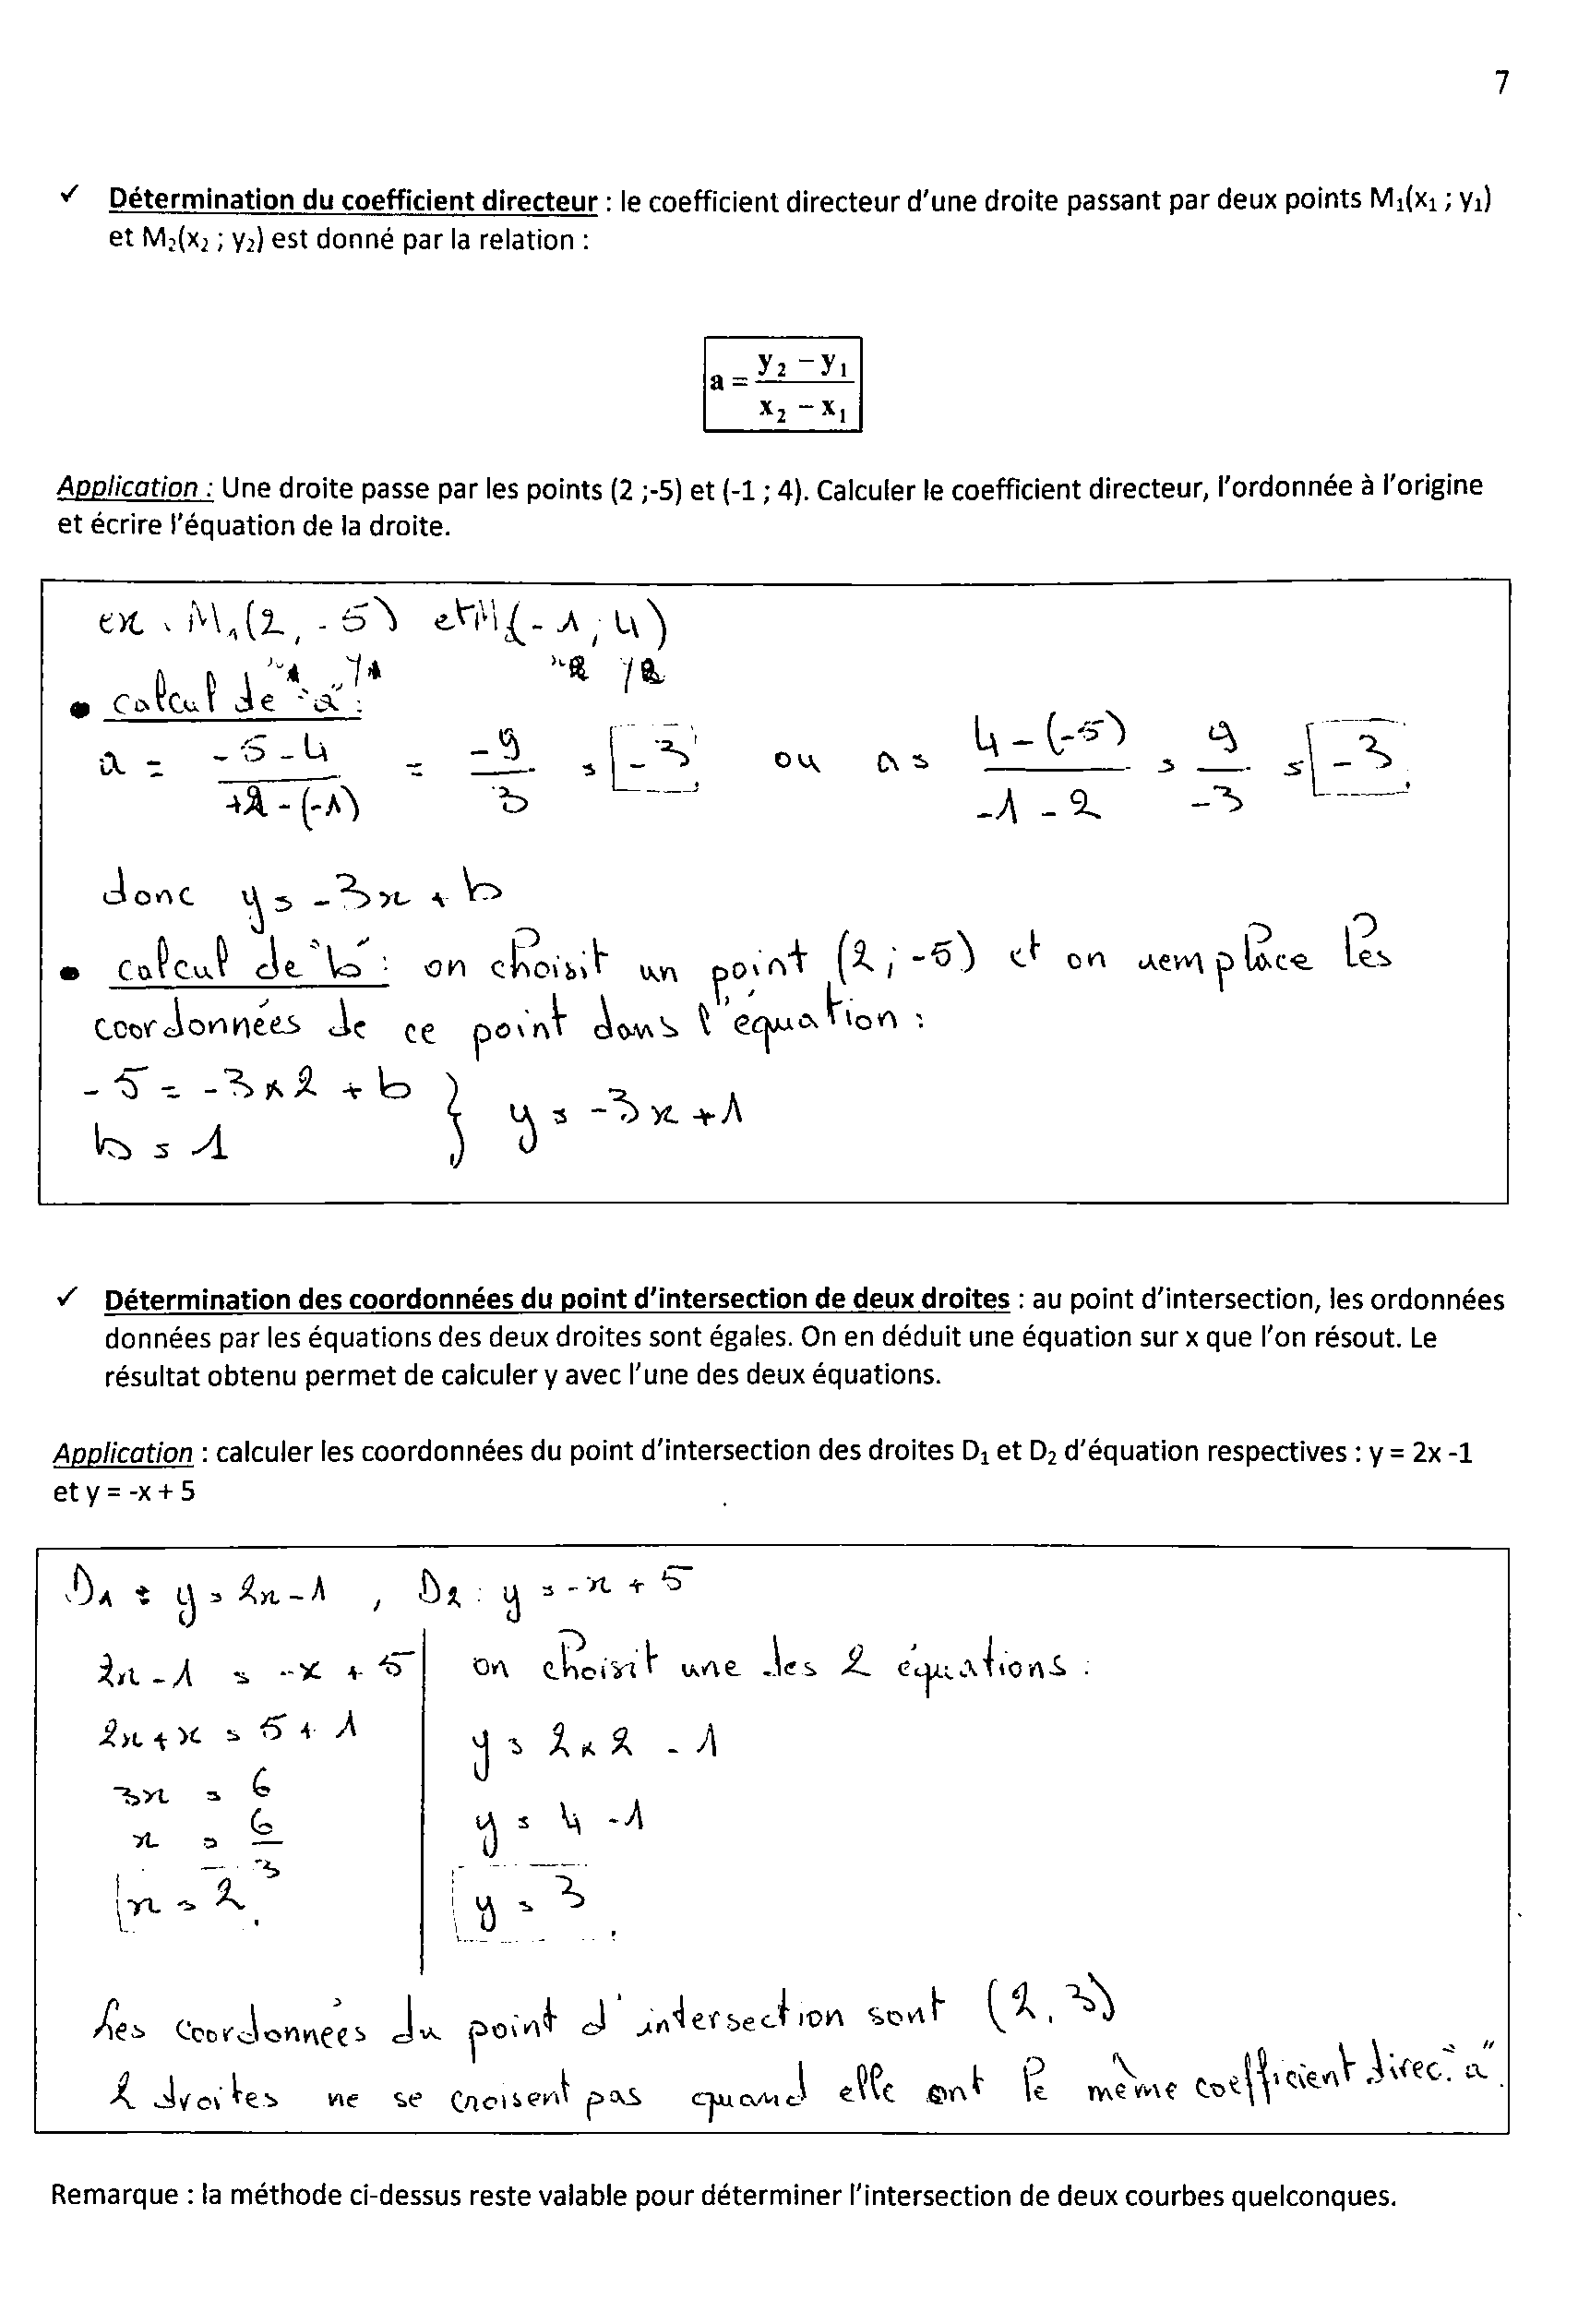 7
✓ Détermination du coefficient directeur : le coefficient directeur d'une droite passant par deux points M₁(x₁ ; y₁)
et M₂(x₂ ; y₂) est donné par la relation :
a = (y₂ − y₁) / (x₂ − x₁)
Application : Une droite passe par les points (2 ;-5) et (-1 ; 4). Calculer le coefficient directeur, l'ordonnée à l'origine
et écrire l'équation de la droite.
ex . M₁(2, -5) et M₂(-1 ; 4)
x₁ y₁ x₂ y₂
• calcul de "a" :
a = (-5-4) / (+2-(-1)) = -9/3 = -3 ou a = (4-(-5)) / (-1-2) = 9/-3 = -3
donc y = -3x + b
• calcul de "b" : on choisit un point (2 ; -5) et on remplace les
coordonnées de ce point dans l'équation :
-5 = -3×2 + b } y = -3x +1
b = 1
✓ Détermination des coordonnées du point d'intersection de deux droites : au point d'intersection, les ordonnées
données par les équations des deux droites sont égales. On en déduit une équation sur x que l'on résout. Le
résultat obtenu permet de calculer y avec l'une des deux équations.
Application : calculer les coordonnées du point d'intersection des droites D₁ et D₂ d'équation respectives : y = 2x -1
et y = -x + 5
D₁ : y = 2x - 1 , D₂ : y = -x + 5
2x - 1 = -x + 5
2x + x = 5 + 1
3x = 6
x = 6/3
x = 2
on choisit une des 2 équations :
y = 2×2 - 1
y = 4 - 1
y = 3
Les coordonnées du point d'intersection sont (2, 3)
2 droites ne se croisent pas quand elle ont le même coefficient direc. "a".
Remarque : la méthode ci-dessus reste valable pour déterminer l'intersection de deux courbes quelconques.